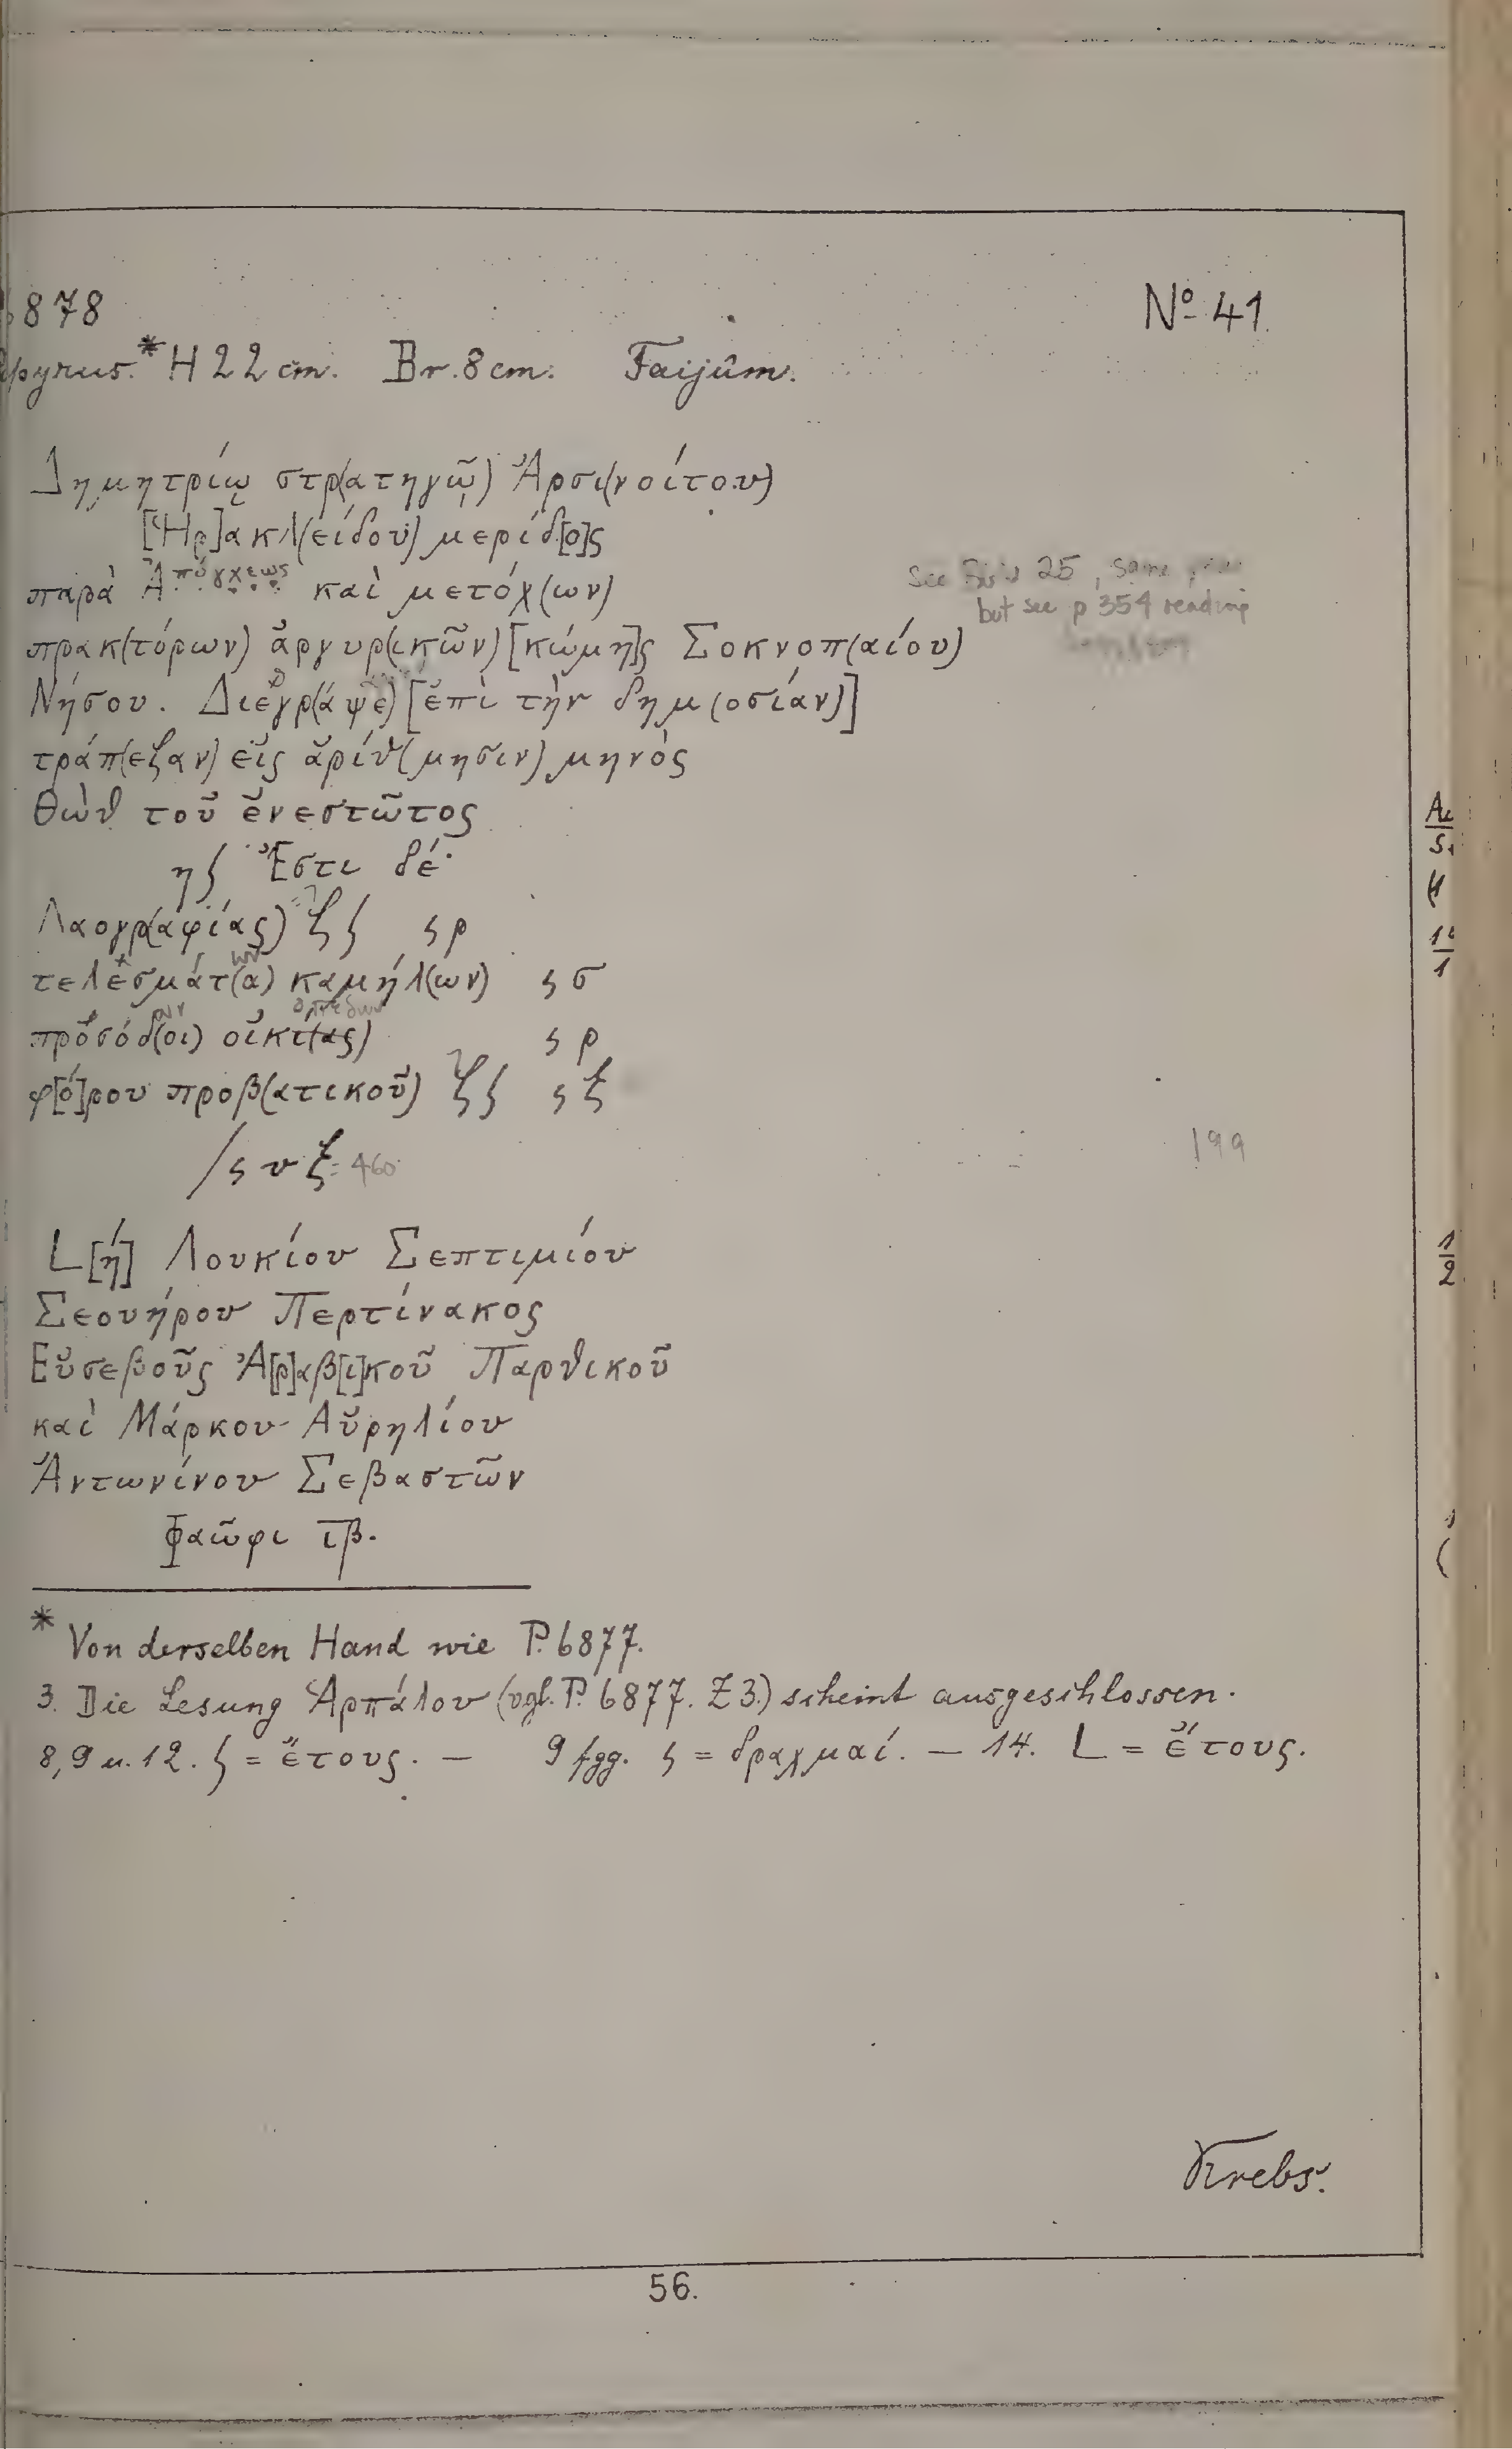 878
Nº 41.
pyrus.* H 22 cm. Br. 8 cm. Faijûm.
Δημητρίῳ στρ(ατηγῷ) Ἀρσι(νοίτου)
[Ἡρ]ακλ(είδου) μερίδ[ο]ς
παρὰ Ἀπύγχεως καὶ μετόχ(ων)
see 25, same
but see p 354 reading
πρακ(τόρων) ἀργυρ(ικῶν) [κώμη]ς Σοκνοπ(αίου)
Νήσου. Διεγρ(άψε) [ἐπὶ τὴν δημ(οσίαν)]
τράπ(εζαν) εἰς ἀρίθ(μησιν) μηνὸς
Θὼθ τοῦ ἐνεστῶτος
ηʃ Ἔστι δέ·
Λαογρ(αφίας) ζʃ ϛ ρ
τελέσμάτ(α) καμήλ(ων) ϛ σ
ων
πρόσόδ(οι) οἰκι(ας) ϛ ρ
φ[ό]ρου προβ(ατικοῦ) ζʃ ϛ ξ
/ ϛ υ ξ = 460
199
L [ή] Λουκίου Σεπτιμίου
Σεουήρου Περτίνακος
Εὐσεβοῦς Ἀ[ρ]αβ[ι]κοῦ Παρθικοῦ
καὶ Μάρκου Αὐρηλίου
Ἀντωνίνου Σεβαστῶν
Φαῶφι ι̅β̅.
* Von derselben Hand wie P. 6877.
3. Die Lesung Ἁρπάλου (vgl. P. 6877. Z 3.) scheint ausgeschlossen.
8, 9 u. 12. ʃ = ἔτους. — 9 fgg. ϛ = δραχμαί. — 14. L = ἔτους.
Krebs.
56.